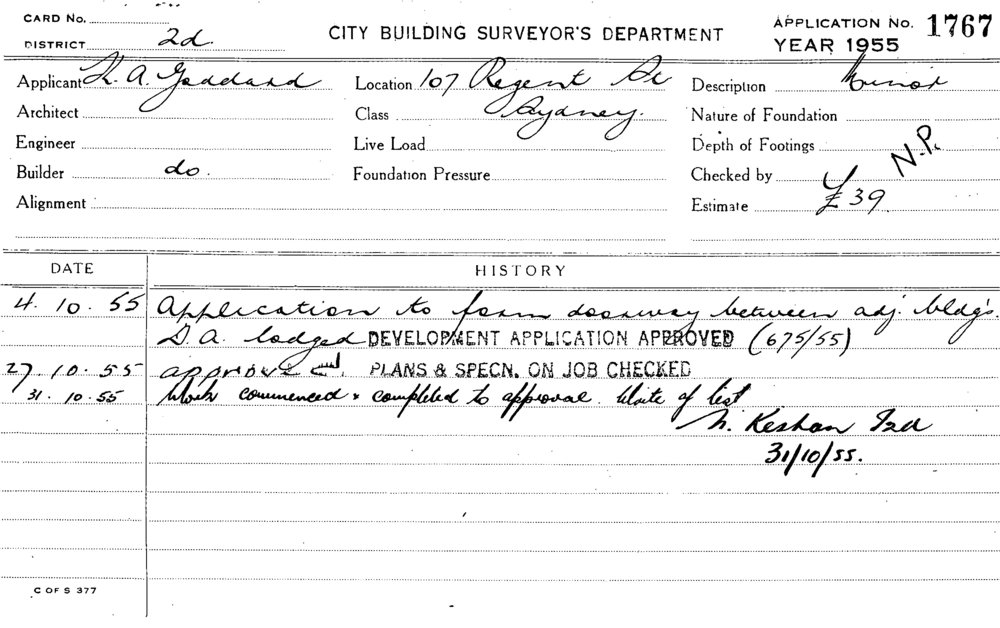 CARD No.
DISTRICT 2d.
CITY BUILDING SURVEYOR'S DEPARTMENT
APPLICATION No. 1767
YEAR 1955
Applicant K. A. Goddard
Location 107 Regent St
Description Minor
Architect
Class Sydney.
Nature of Foundation
Engineer
Live Load
Depth of Footings
Builder do.
Foundation Pressure
Checked by N.P.
Alignment
Estimate £39
DATE HISTORY
4. 10. 55 Application to form doorway between adj. bldg's.
D.A. lodged DEVELOPMENT APPLICATION APPROVED (675/55)
27. 10. 55 approve PLANS & SPECN. ON JOB CHECKED
31. 10. 55 Work commenced & completed to approval. Write of list
N. Keshan
31/10/55.
C OF S 377